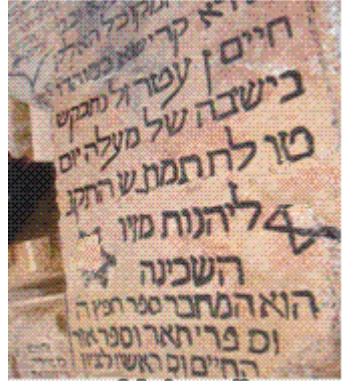 קדישא
חיים ן עטר זל נתבקש
בישבה של מעלה יום
טו לח תמת ש התקג
ליהנות מזיו
השכינה
הוא המחבר ספר חפץ ה
וס פרי תאר וספר אור
החיים וס ראשון לציון